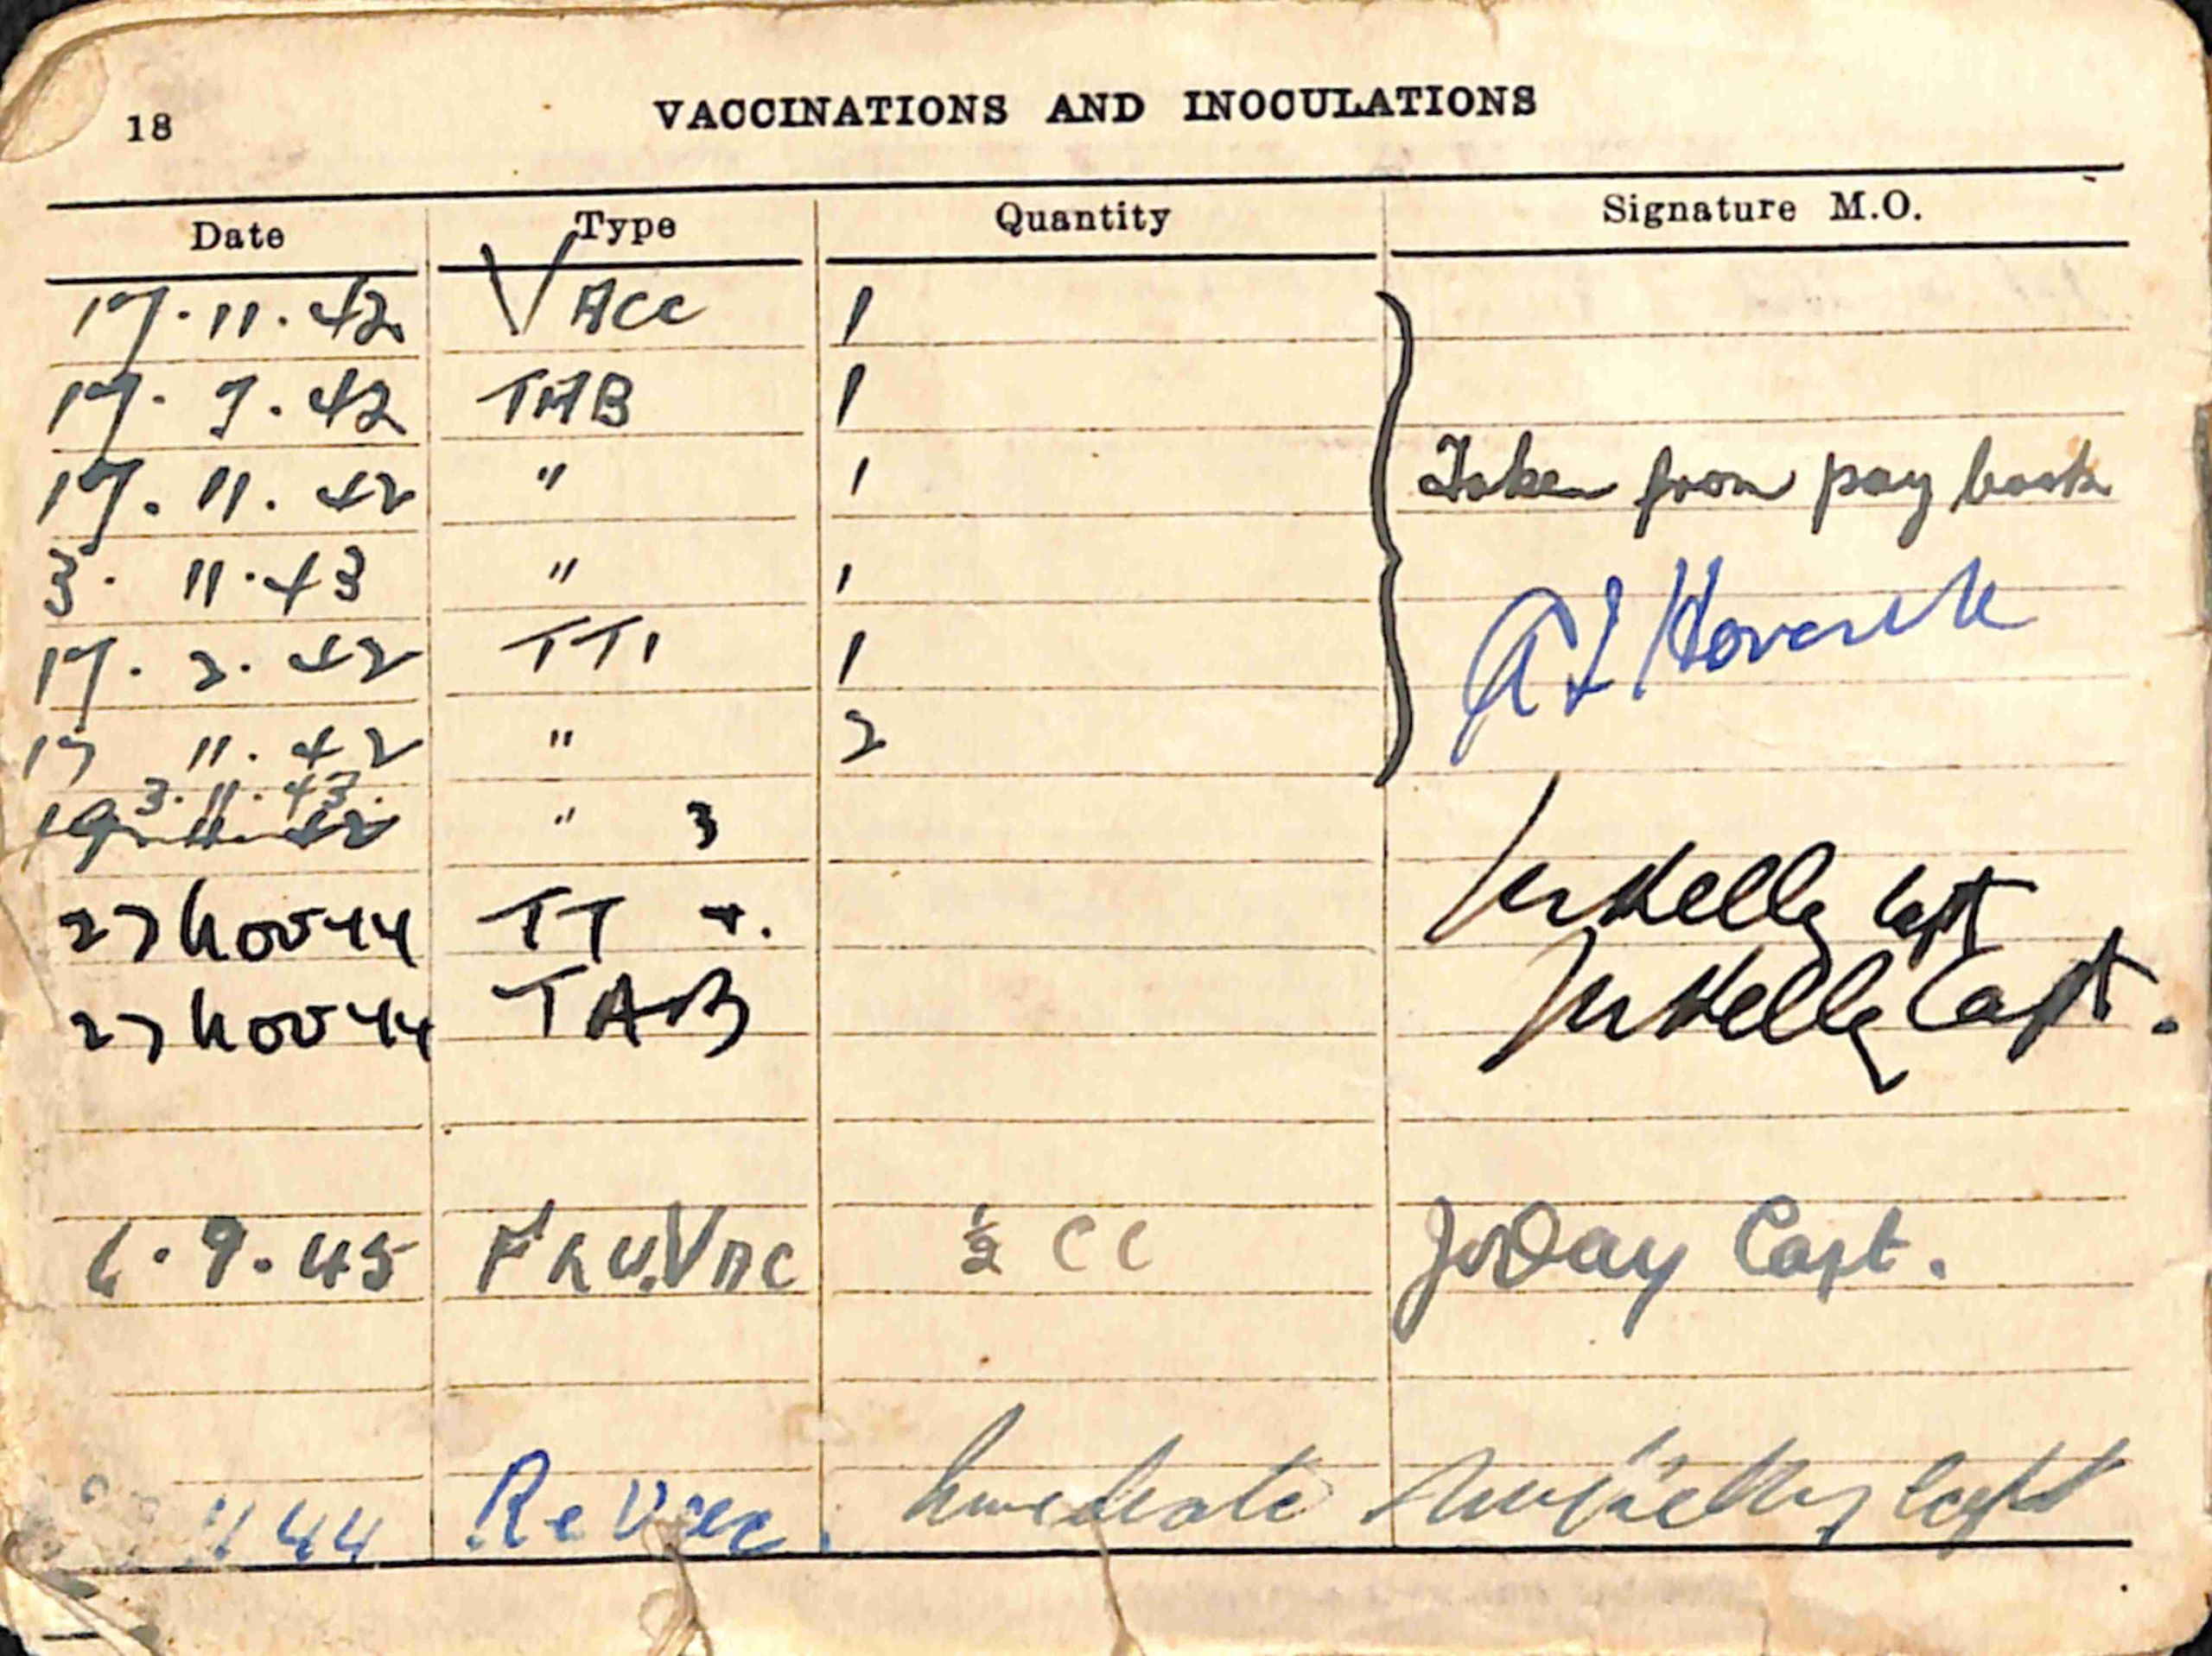 18
VACCINATIONS AND INOCULATIONS
Date Type Quantity Signature M.O.
17.11.42 VAcc 1
17. 7. 42 TAB 1
17. 11. 42 " 1 Taken from pay book
3. 11.43 " 1
17. 2. 42 TT1 1
17 11. 42 " 2
3.11.43.
19.11.42 " 3
27 Nov 44 TT Kelly Capt
27 Nov 44 TAB Kelly Capt.
6.9.45 Flu.Vac ½ CC Day Capt.
11 44 ReVacc. Immediate Capt